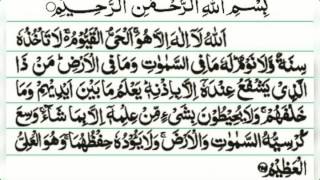 بِسْمِ اللهِ الرَّحْمٰنِ الرَّحِيْمِ
اَللهُ لَاۤ اِلٰهَ اِلَّا هُوَ ۚ اَلْحَيُّ الْقَيُّوْمُ ۚ لَا تَاْخُذُهٗ
سِنَةٌ وَّلَا نَوْمٌ ؕ لَهٗ مَا فِى السَّمٰوٰتِ وَمَا فِى الْاَرْضِ ؕ مَنْ ذَا
الَّذِىْ يَشْفَعُ عِنْدَهٗۤ اِلَّا بِاِذْنِهٖ ؕ يَعْلَمُ مَا بَيْنَ اَيْدِيْهِمْ وَمَا
خَلْفَهُمْ ۚ وَلَا يُحِيْطُوْنَ بِشَىْءٍ مِّنْ عِلْمِهٖۤ اِلَّا بِمَا شَآءَ ۚ وَسِعَ
كُرْسِيُّهُ السَّمٰوٰتِ وَالْاَرْضَ ۚ وَلَا يَـُٔوْدُهٗ حِفْظُهُمَا ۚ وَهُوَ الْعَلِىُّ
الْعَظِيْمُ